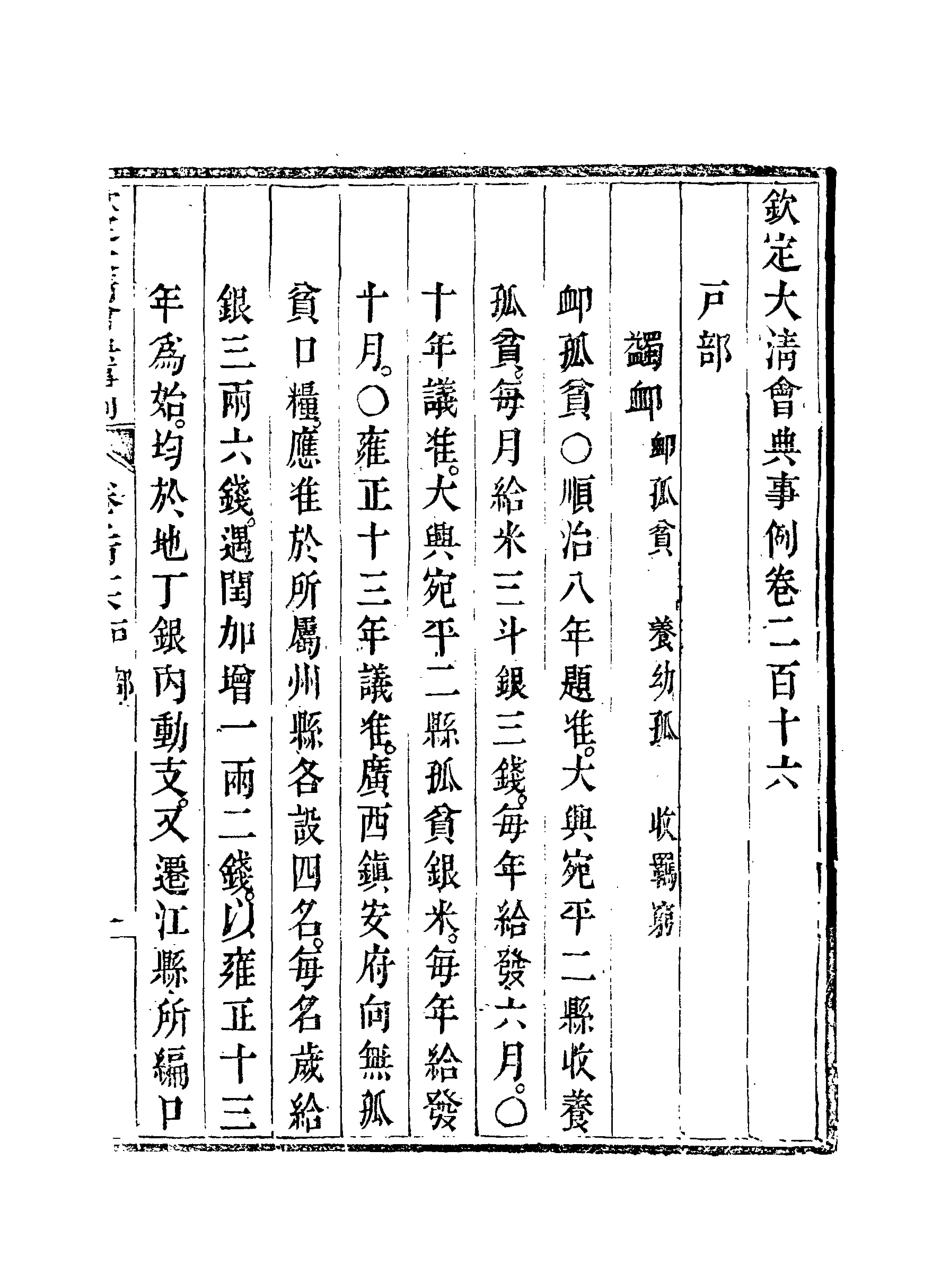 欽定大清會典事例卷二百十六
戸部
蠲䘏䘏孤貧　養幼孤　收羈窮
䘏孤貧○順治八年題准。大興宛平二縣收養
孤貧。每月給米三斗銀三錢。每年給發六月。○
十年議准。大興宛平二縣孤貧銀米。每年給發
十月。○雍正十三年議准。廣西鎮安府向無孤
貧口糧。應准於所屬州縣各設四名。每名歲給
銀三兩六錢。遇閏加增一兩二錢。以雍正十三
年爲始。均於地丁銀內動支。又遷江縣所編口